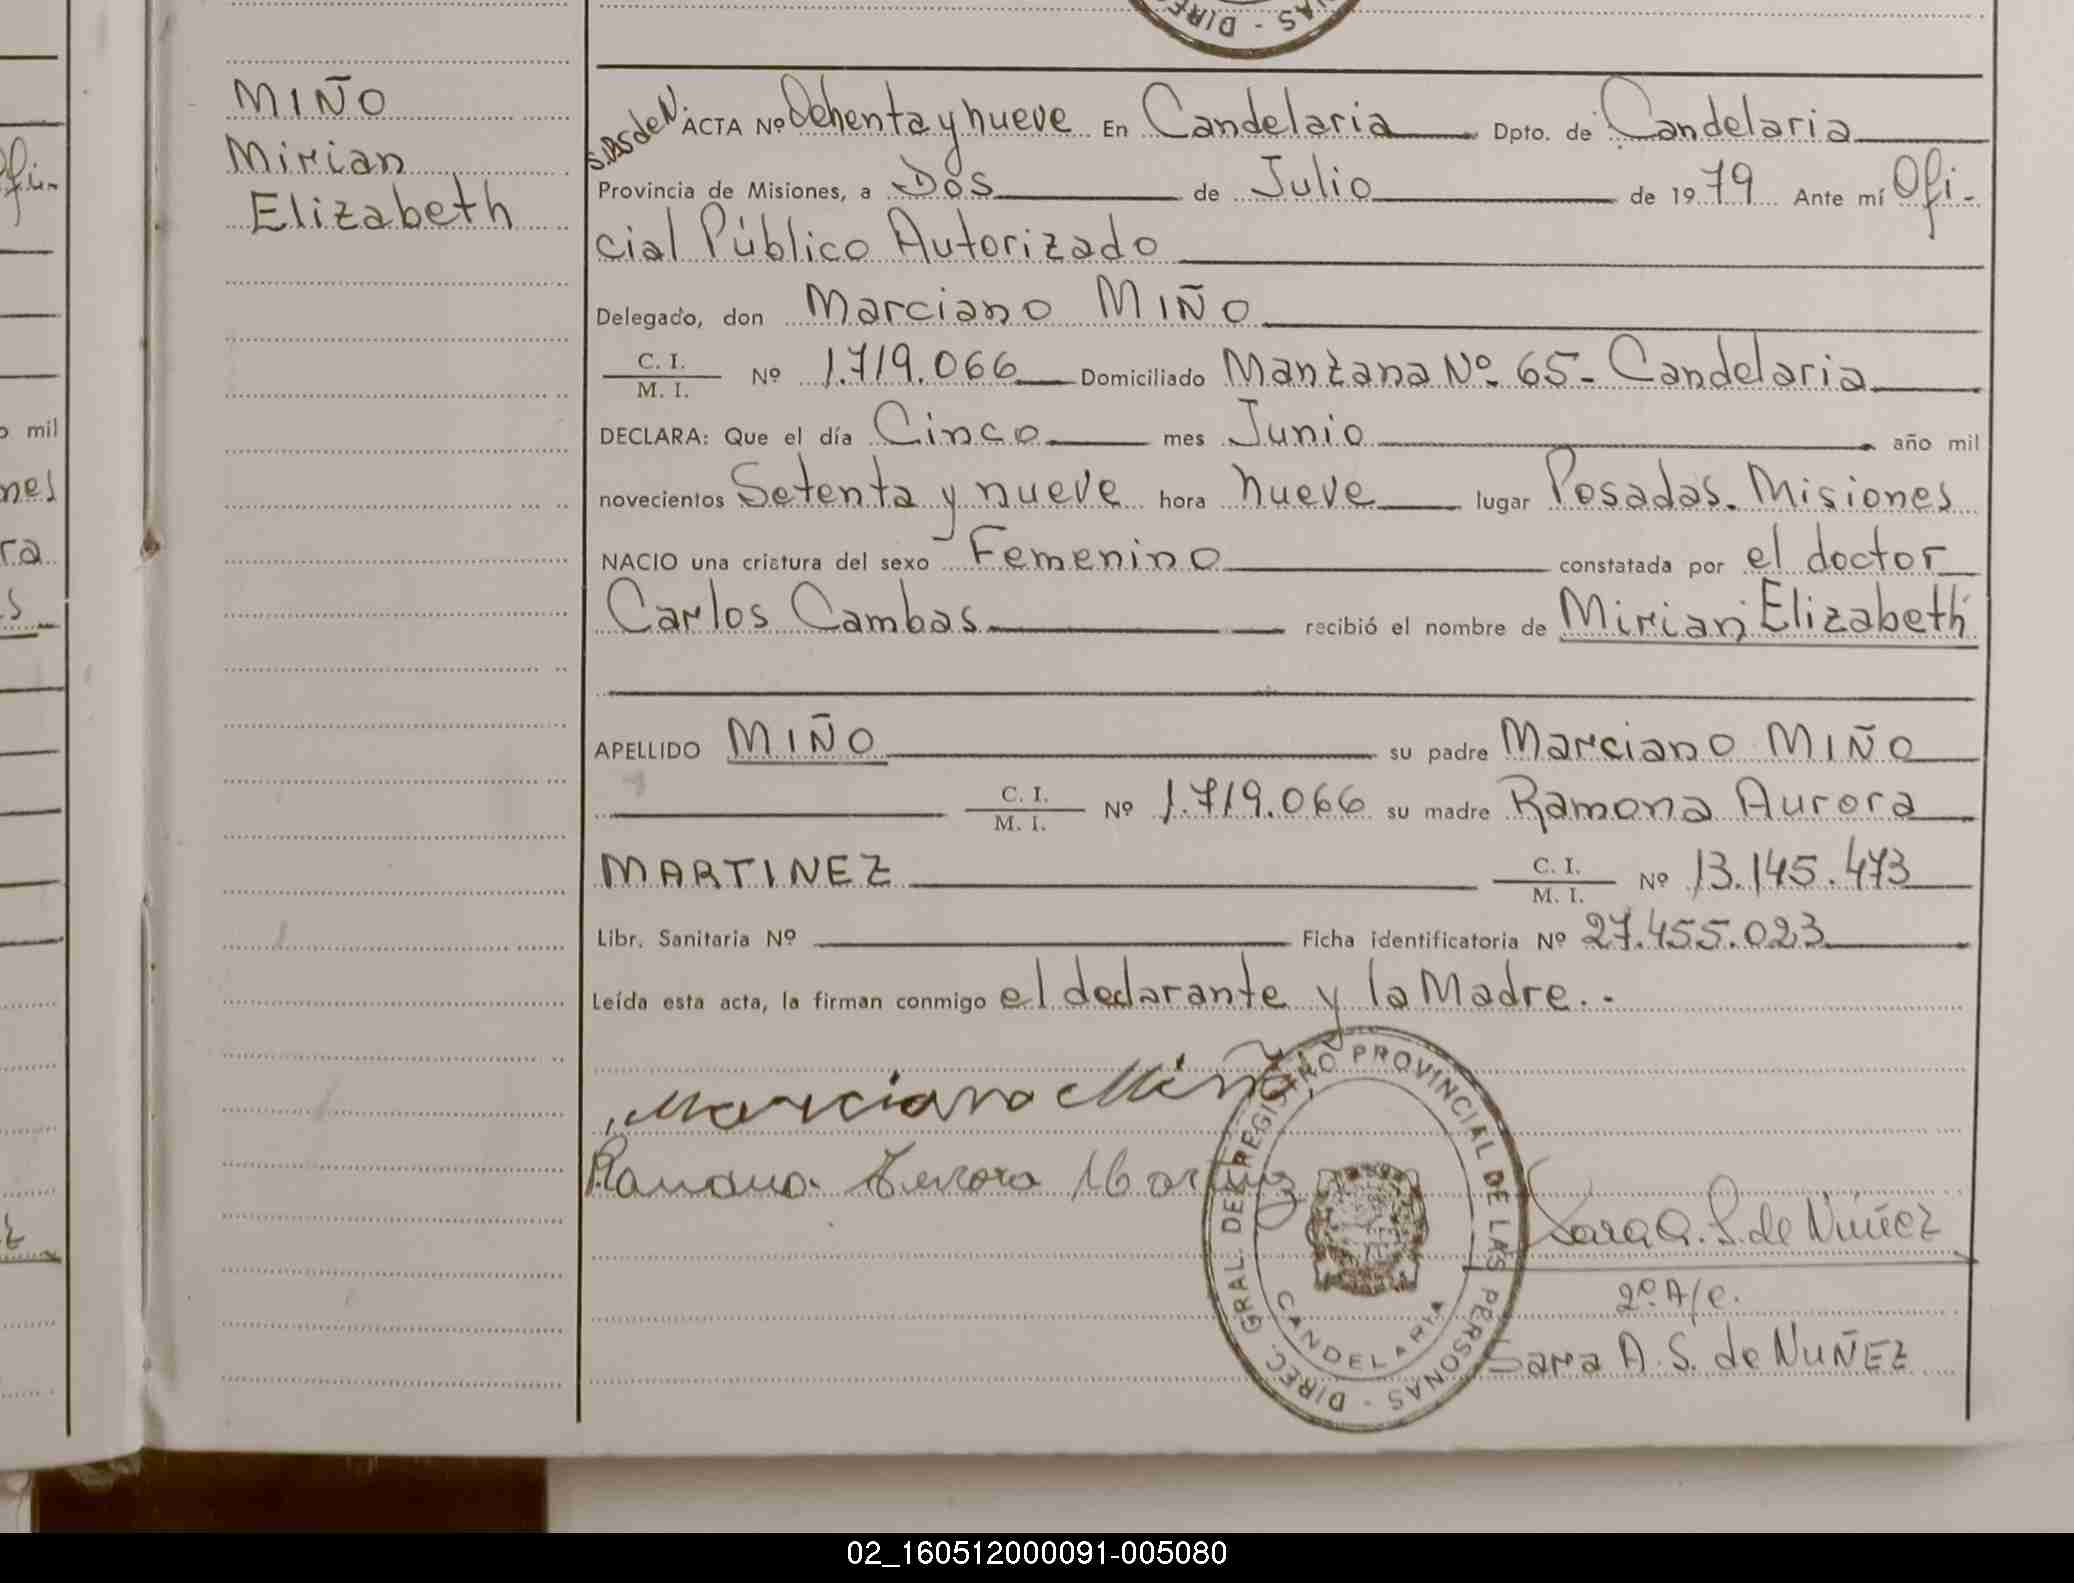 DIREC - AS
MIÑO
Mirian
Elizabeth
S.AS de N.
ACTA Nº Ochenta y nueve En Candelaria Dpto. de Candelaria
Provincia de Misiones, a Dos de Julio de 1979 Ante mí Ofi-
cial Público Autorizado
Delegado, don Marciano MIÑO
C. I. / M. I. Nº 1.719.066 Domiciliado Manzana Nº 65- Candelaria
DECLARA: Que el día Cinco mes Junio año mil
novecientos Setenta y nueve hora nueve lugar Posadas. Misiones
NACIO una criatura del sexo Femenino constatada por el doctor
Carlos Cambas recibió el nombre de Mirian Elizabeth
APELLIDO MIÑO su padre Marciano MIÑO
C. I. / M. I. Nº 1.719.066 su madre Ramona Aurora
MARTINEZ C. I. / M. I. Nº 13.145.473
Libr. Sanitaria Nº Ficha identificatoria Nº 27.455.023
Leída esta acta, la firman conmigo el declarante y la Madre.-
Marciano Miño
Ramona Aurora Martinez
DIREC. GRAL. DEL REGISTRO PROVINCIAL DE LAS PERSONAS -
CANDELARIA
Sara A. S. de Núñez
2º A/c.
Sara A. S. de NUÑEZ
ofi-
o mil
nes
ra
s
z
02_160512000091-005080